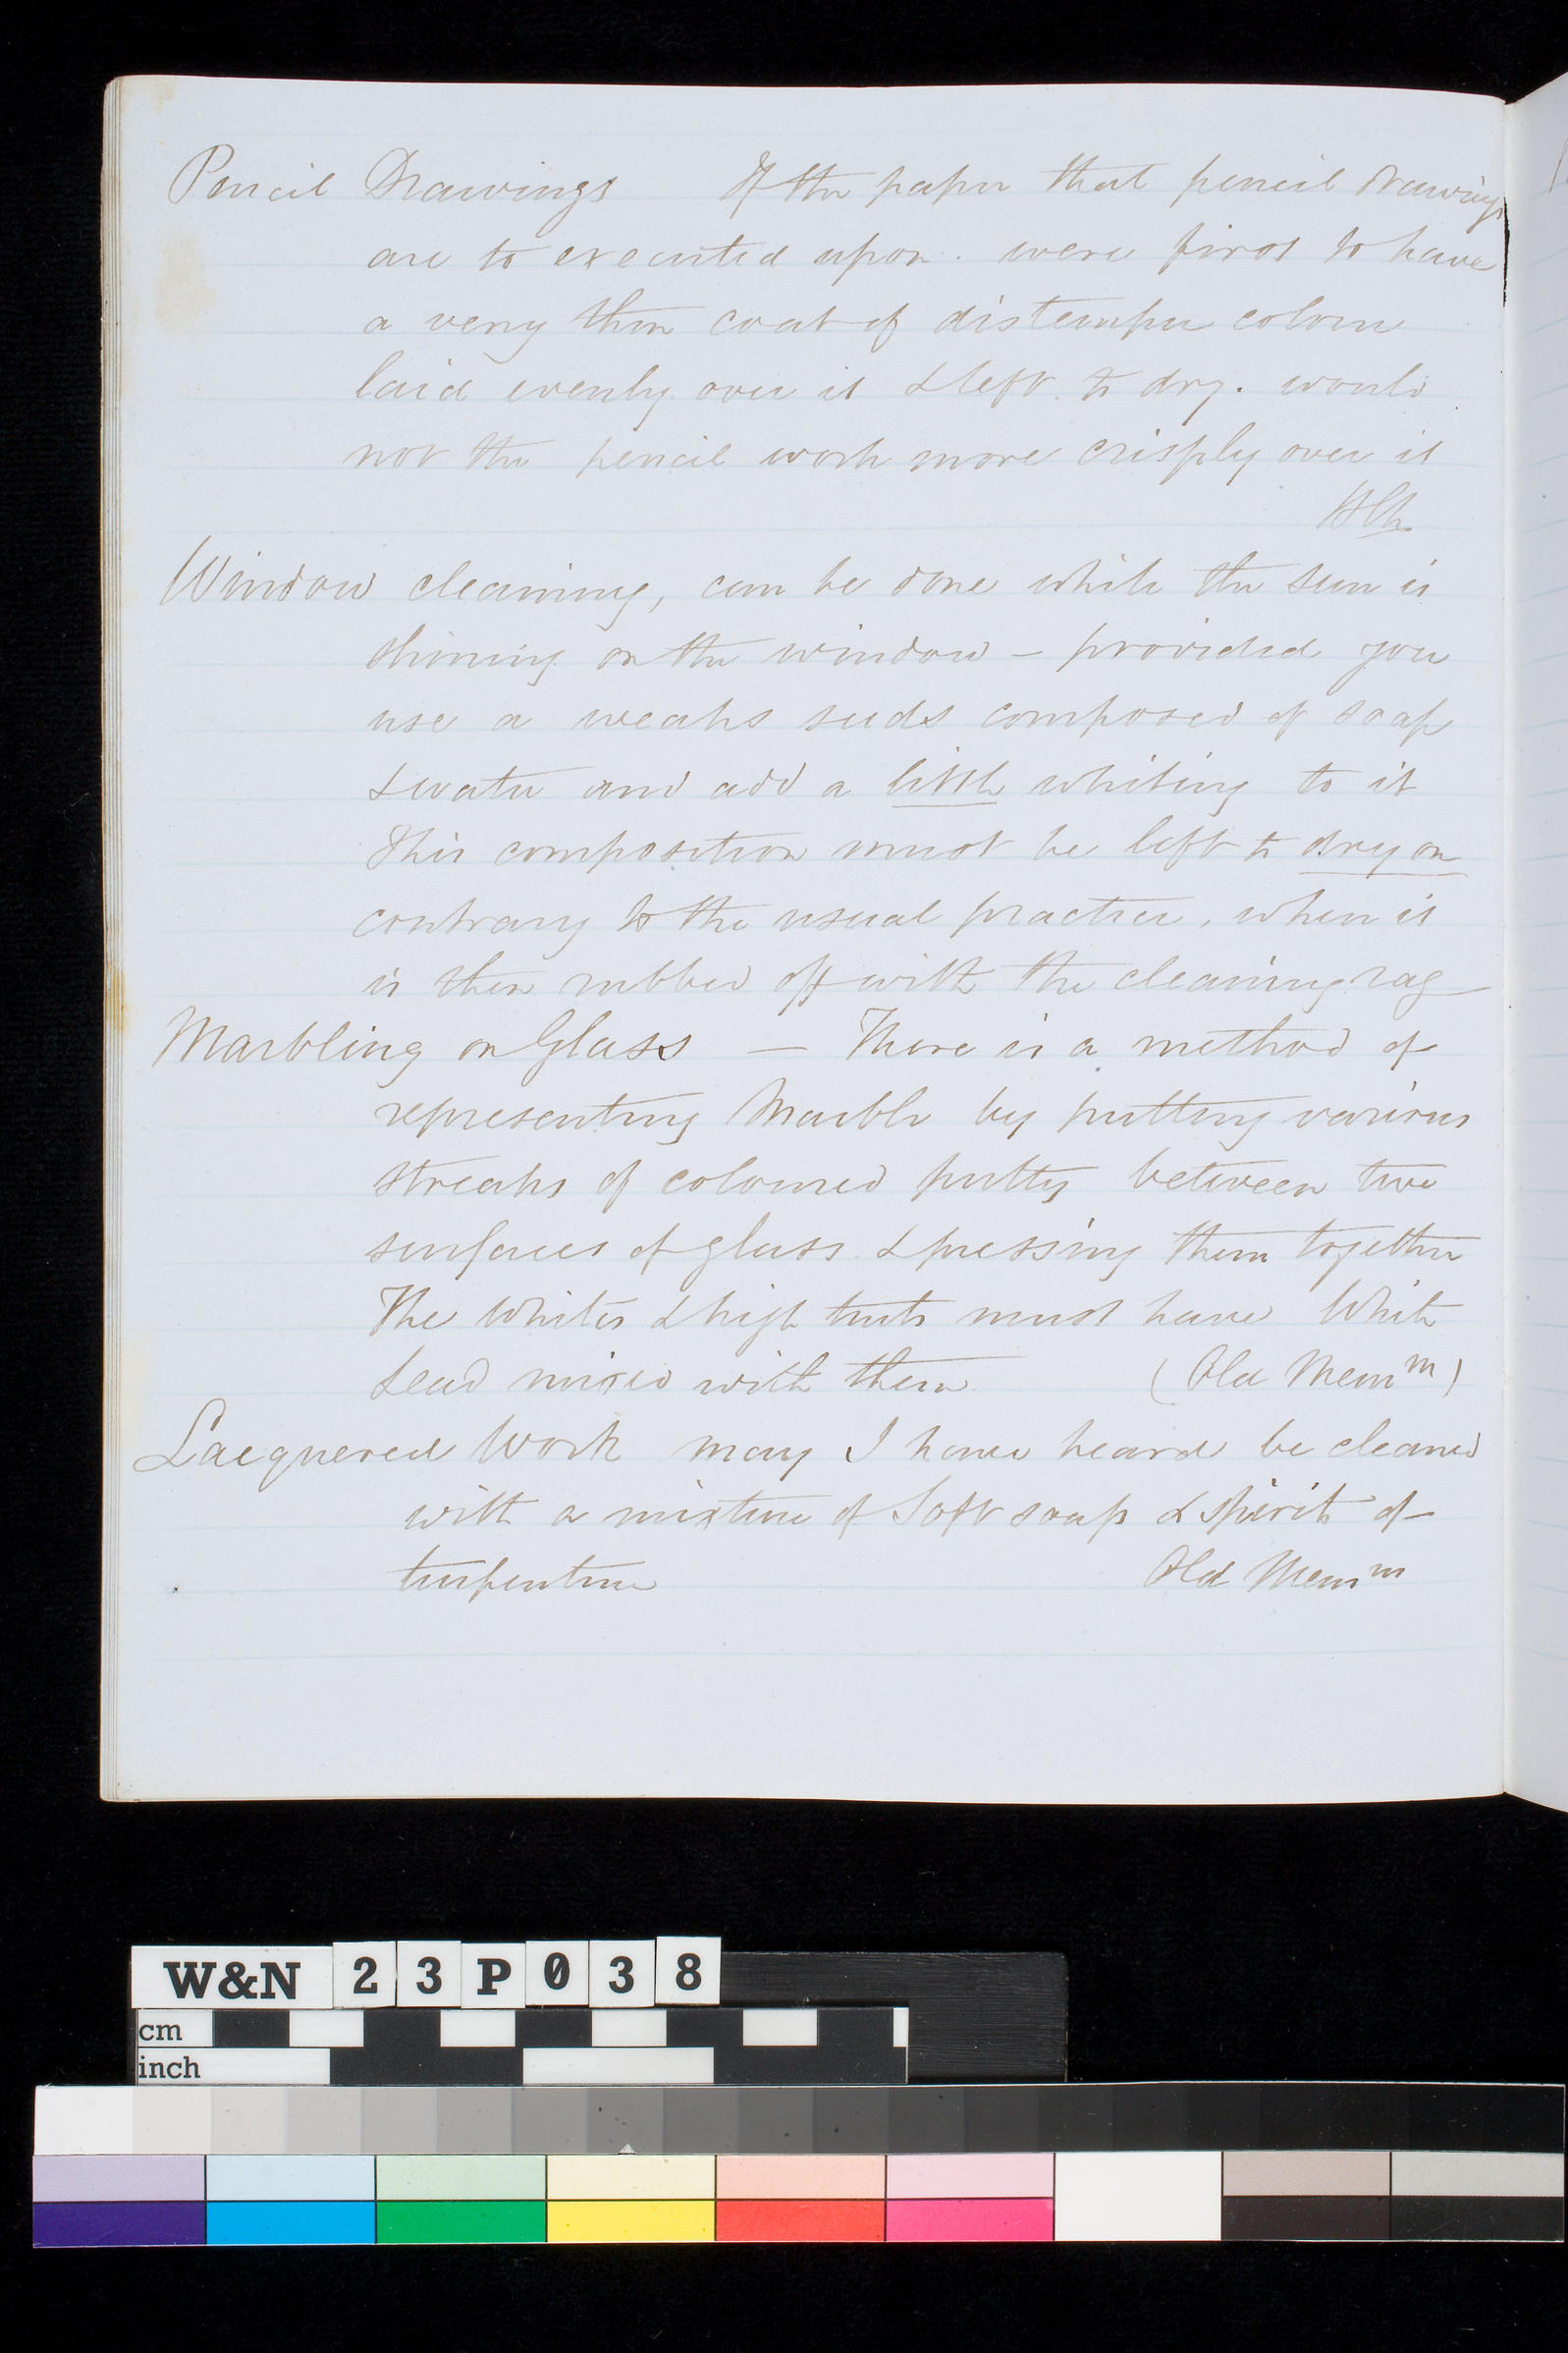 Pencil Drawings If the paper that pencil drawings
are to executed upon. were first to have
a very thin coat of distemper colour
laid evenly over it & left to dry. would
not the pencil work more crisply over it
Window cleaning, can be done while the sun is
shining on the window – provided you
use a weak suds composed of soap
& water and add a little whiting to it
This composition must be left to dry on
contrary to the usual practice, when it
is then rubbed off with the cleaning rag
Marbling on Glass — There is a method of
representing Marble by putting various
streaks of coloured putty between two
surfaces of glass & pressing them together
The Whites & high tints must have White
Lead mixed with them (Old Mem m)
Lacquered Work may I have heard be cleaned
with a mixture of Soft soap & spirit of
turpentine Old Mem m
W&N 23P038
cm
inch